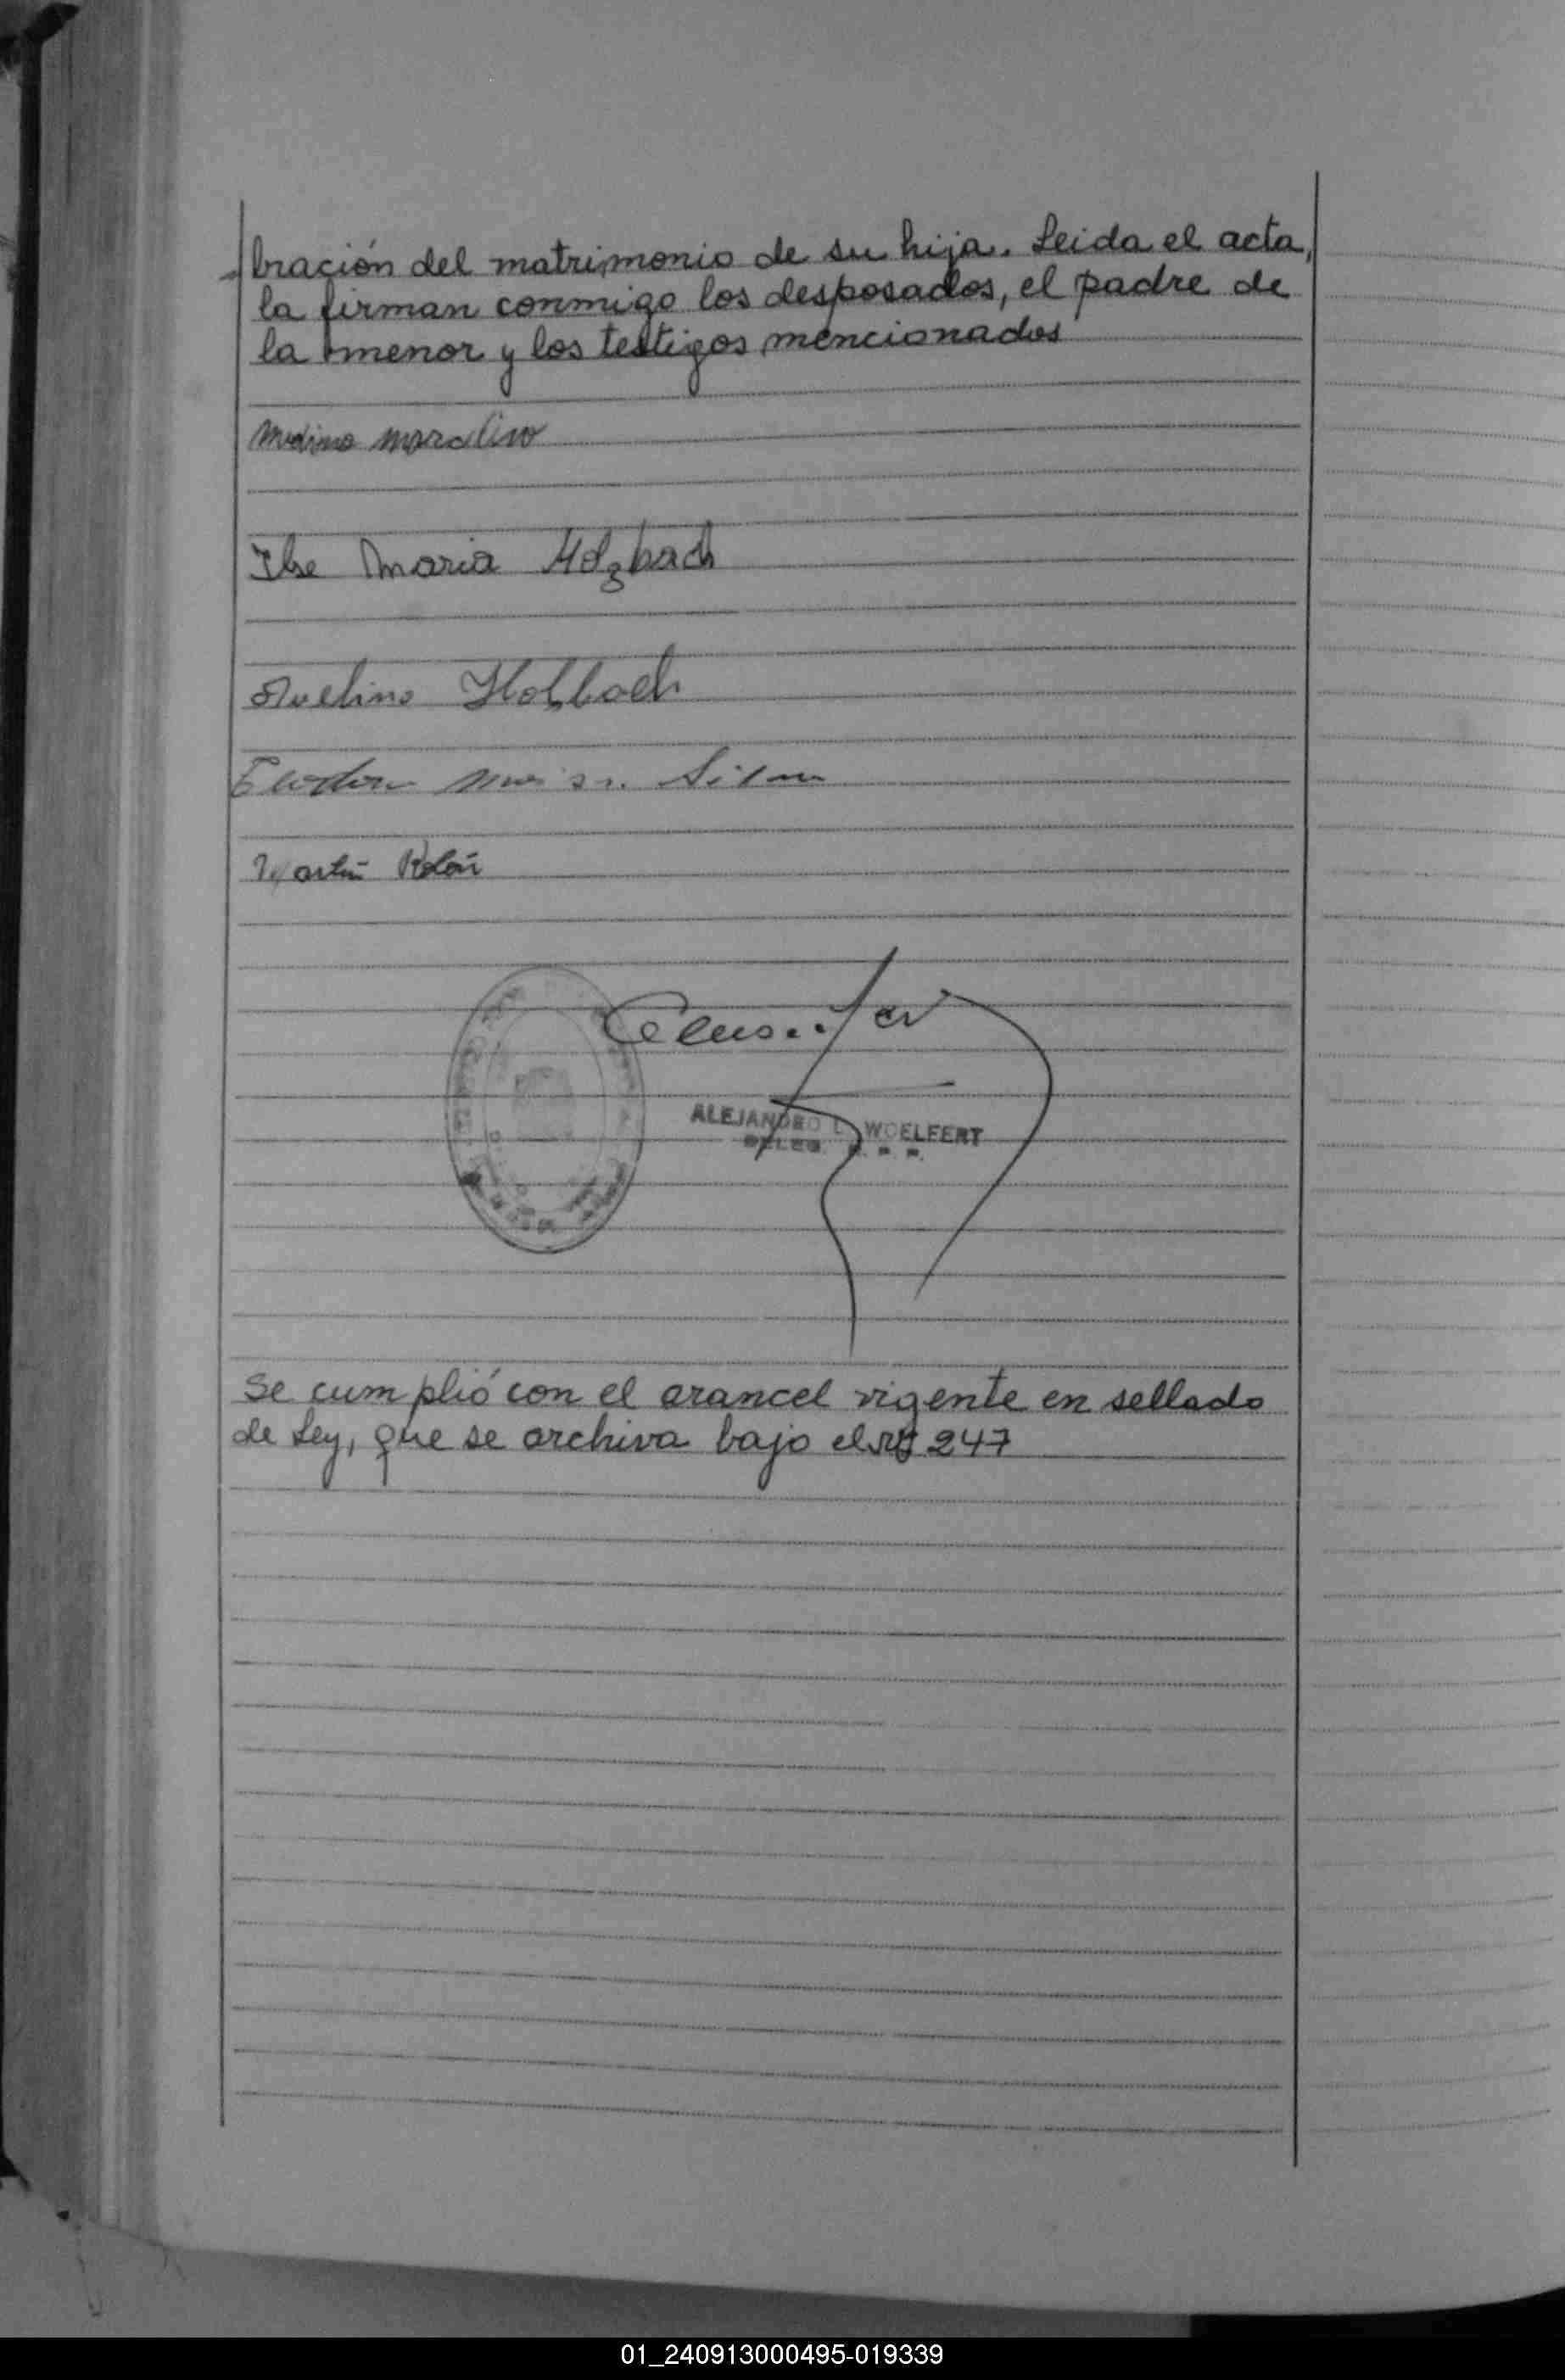 bración del matrimonio de su hija. Leida el acta,
la firman conmigo los desposados, el padre de
la menor y los testigos mencionados
Ilse Maria Holzbach
Avelino Holzbach
Martin Rolón
ALEJANDRO L. WOELFERT
Se cumplió con el arancel vigente en sellado
de Ley, que se archiva bajo el Nº 247
01_240913000495-019339